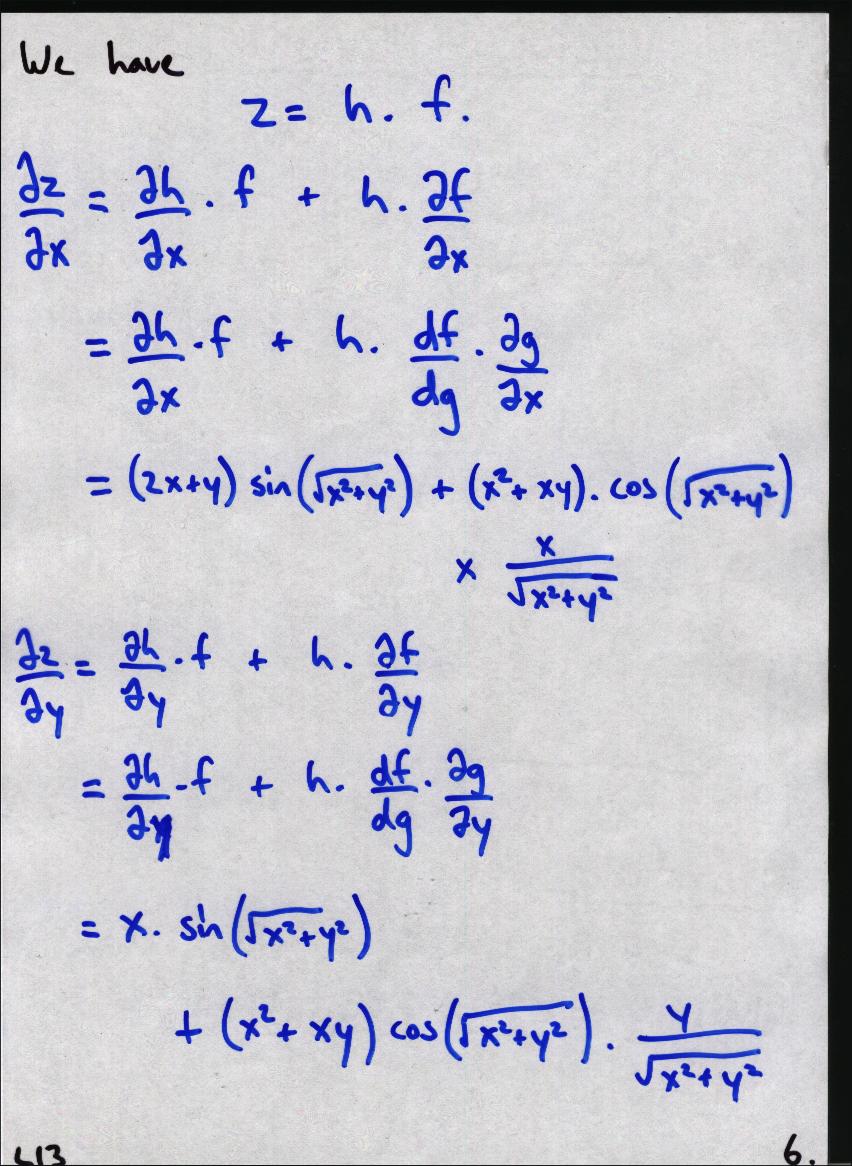 We have
z = h . f.
∂z/∂x = ∂h/∂x . f + h . ∂f/∂x
= ∂h/∂x . f + h . df/dg . ∂g/∂x
= (2x+y) sin(√(x²+y²)) + (x²+xy) . cos(√(x²+y²))
× x/√(x²+y²)
∂z/∂y = ∂h/∂y . f + h . ∂f/∂y
= ∂h/∂y . f + h . df/dg . ∂g/∂y
= x . sin(√(x²+y²))
+ (x²+xy) cos(√(x²+y²)) . y/√(x²+y²)
L13 6.